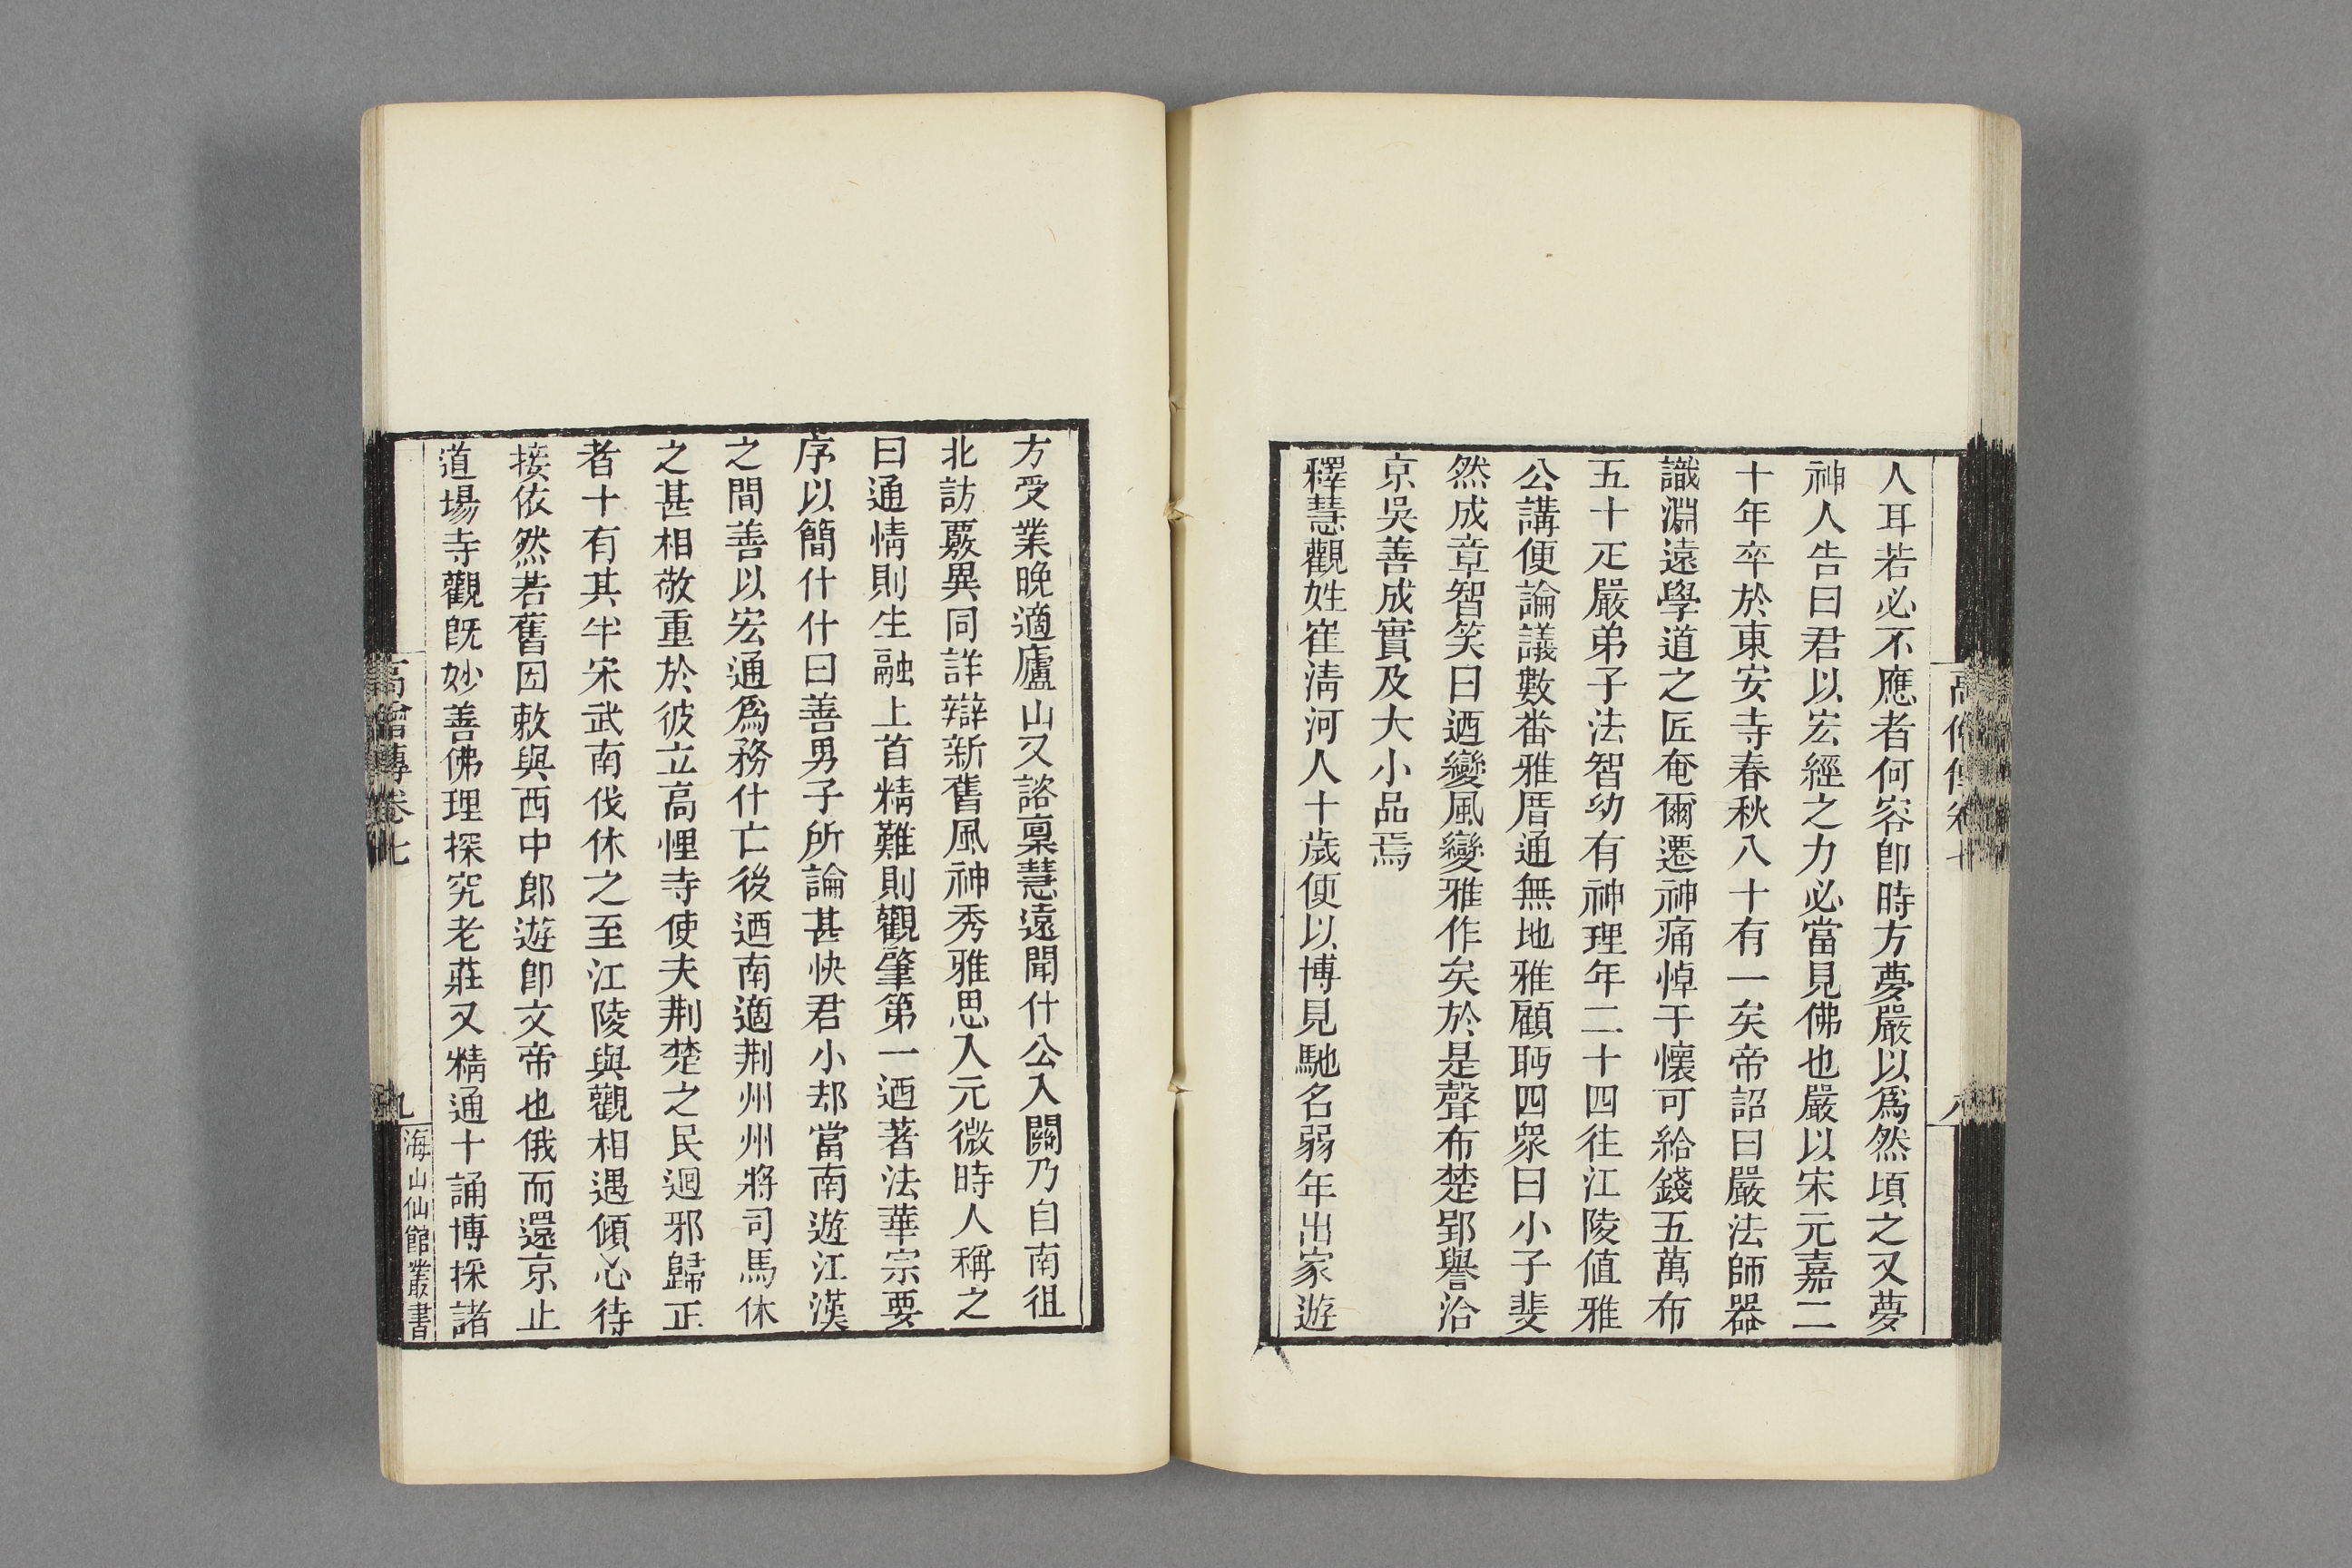 人耳若必不應者何容卽時方夢嚴以爲然頃之又夢
神人告曰君以宏經之力必當見佛也嚴以宋元嘉二
十年卒於東安寺春秋八十有一矣帝詔曰嚴法師器
識淵遠學道之匠奄爾遷神痛悼于懷可給錢五萬布
五十疋嚴弟子法智幼有神理年二十四往江陵値雅
公講便論議數番雅厝通無地雅顧眄四衆曰小子斐
然成章智笑曰迺變風變雅作矣於是聲布楚郢譽洽
京吳善成實及大小品焉
釋慧觀姓崔淸河人十歲便以博見馳名弱年出家遊
高僧傳卷七
八
方受業晚適廬山又諮稟慧遠聞什公入關乃自南徂
北訪覈異同詳辯新舊風神秀雅思入元微時人稱之
曰通情則生融上首精難則觀肇第一迺著法華宗要
序以簡什什曰善男子所論甚快君小却當南遊江漢
之間善以宏通爲務什亡後迺南適荆州州將司馬休
之甚相敬重於彼立高悝寺使夫荆楚之民迴邪歸正
者十有其半宋武南伐休之至江陵與觀相遇傾心待
接依然若舊因敕與西中郎遊卽文帝也俄而還京止
道場寺觀既妙善佛理探究老莊又精通十誦博採諸
高僧傳卷七
九
海山仙館叢書